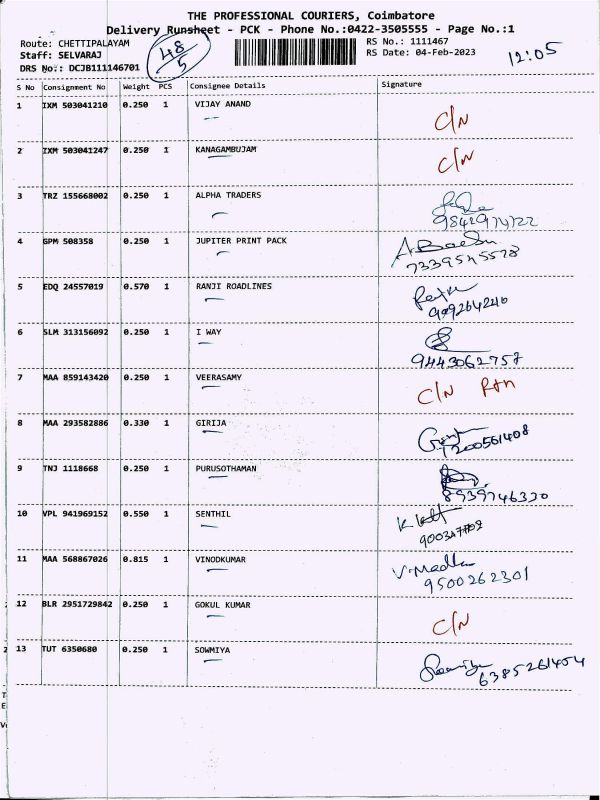 THE PROFESSIONAL COURIERS, Coimbatore
Delivery Runsheet - PCK - Phone No.:0422-3505555 - Page No.:1
Route: CHETTIPALAYAM
Staff: SELVARAJ
DRS No.: DCJB111146701
48/5
RS No.: 1111467
RS Date: 04-Feb-2023
12:05
S No Consignment No Weight PCS Consignee Details Signature
1 IXM 503041210 0.250 1 VIJAY ANAND C/N
2 IXM 503041247 0.250 1 KANAGAMBUJAM C/N
3 TRZ 155668002 0.250 1 ALPHA TRADERS
4 GPM 508358 0.250 1 JUPITER PRINT PACK
7339545578
5 EDQ 24557019 0.570 1 RANJI ROADLINES
6 SLM 313156092 0.250 1 I WAY
9443062757
7 MAA 859143420 0.250 1 VEERASAMY C/N Rtn
8 MAA 293582886 0.330 1 GIRIJA
7200561408
9 TNJ 1118668 0.250 1 PURUSOTHAMAN
8939746330
10 VPL 941969152 0.550 1 SENTHIL
11 MAA 568867026 0.815 1 VINODKUMAR
9500262301
12 BLR 2951729842 0.250 1 GOKUL KUMAR C/N
13 TUT 6350680 0.250 1 SOWMIYA
6385261454